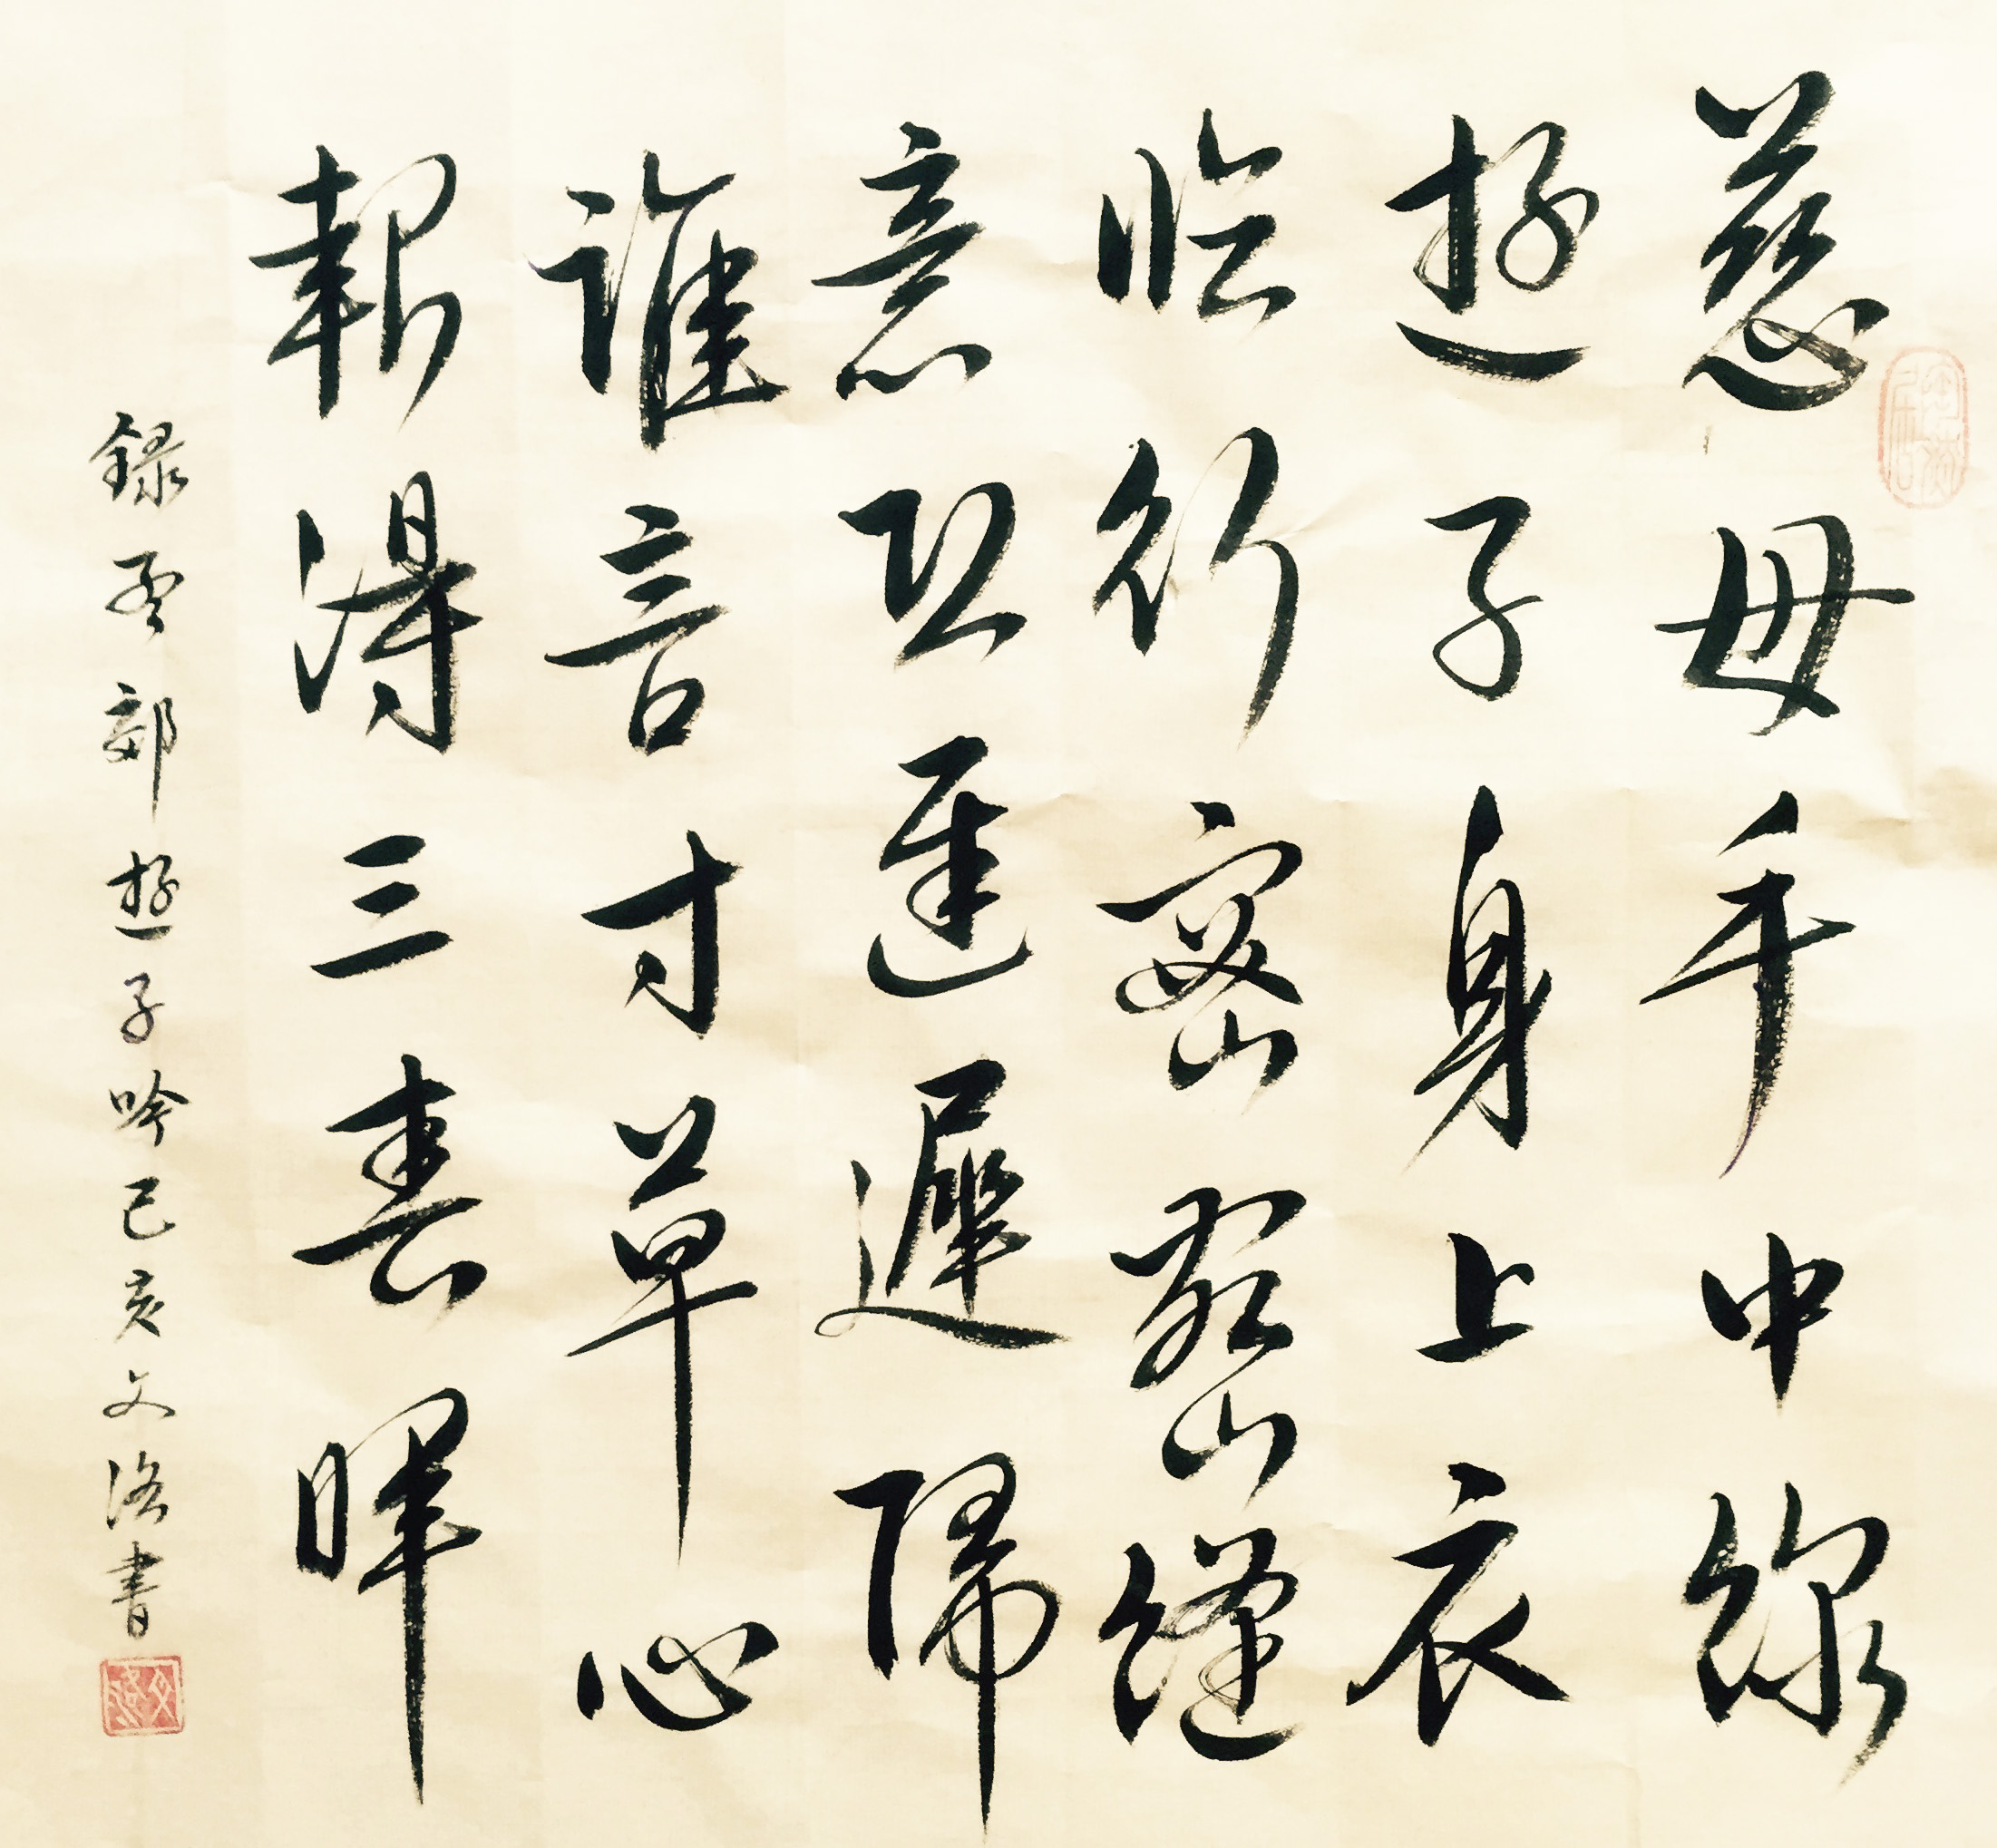 慈母手中線
遊子身上衣
臨行密密縫
意恐遲遲歸
誰言寸草心
報得三春暉
錄孟郊遊子吟己亥文洛書